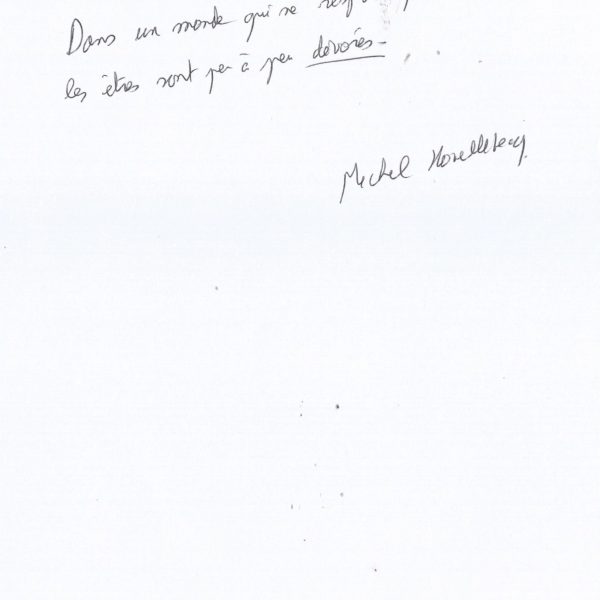 Dans un monde qui ne
les êtres sont peu à peu dévorés -
Michel Houellebecq